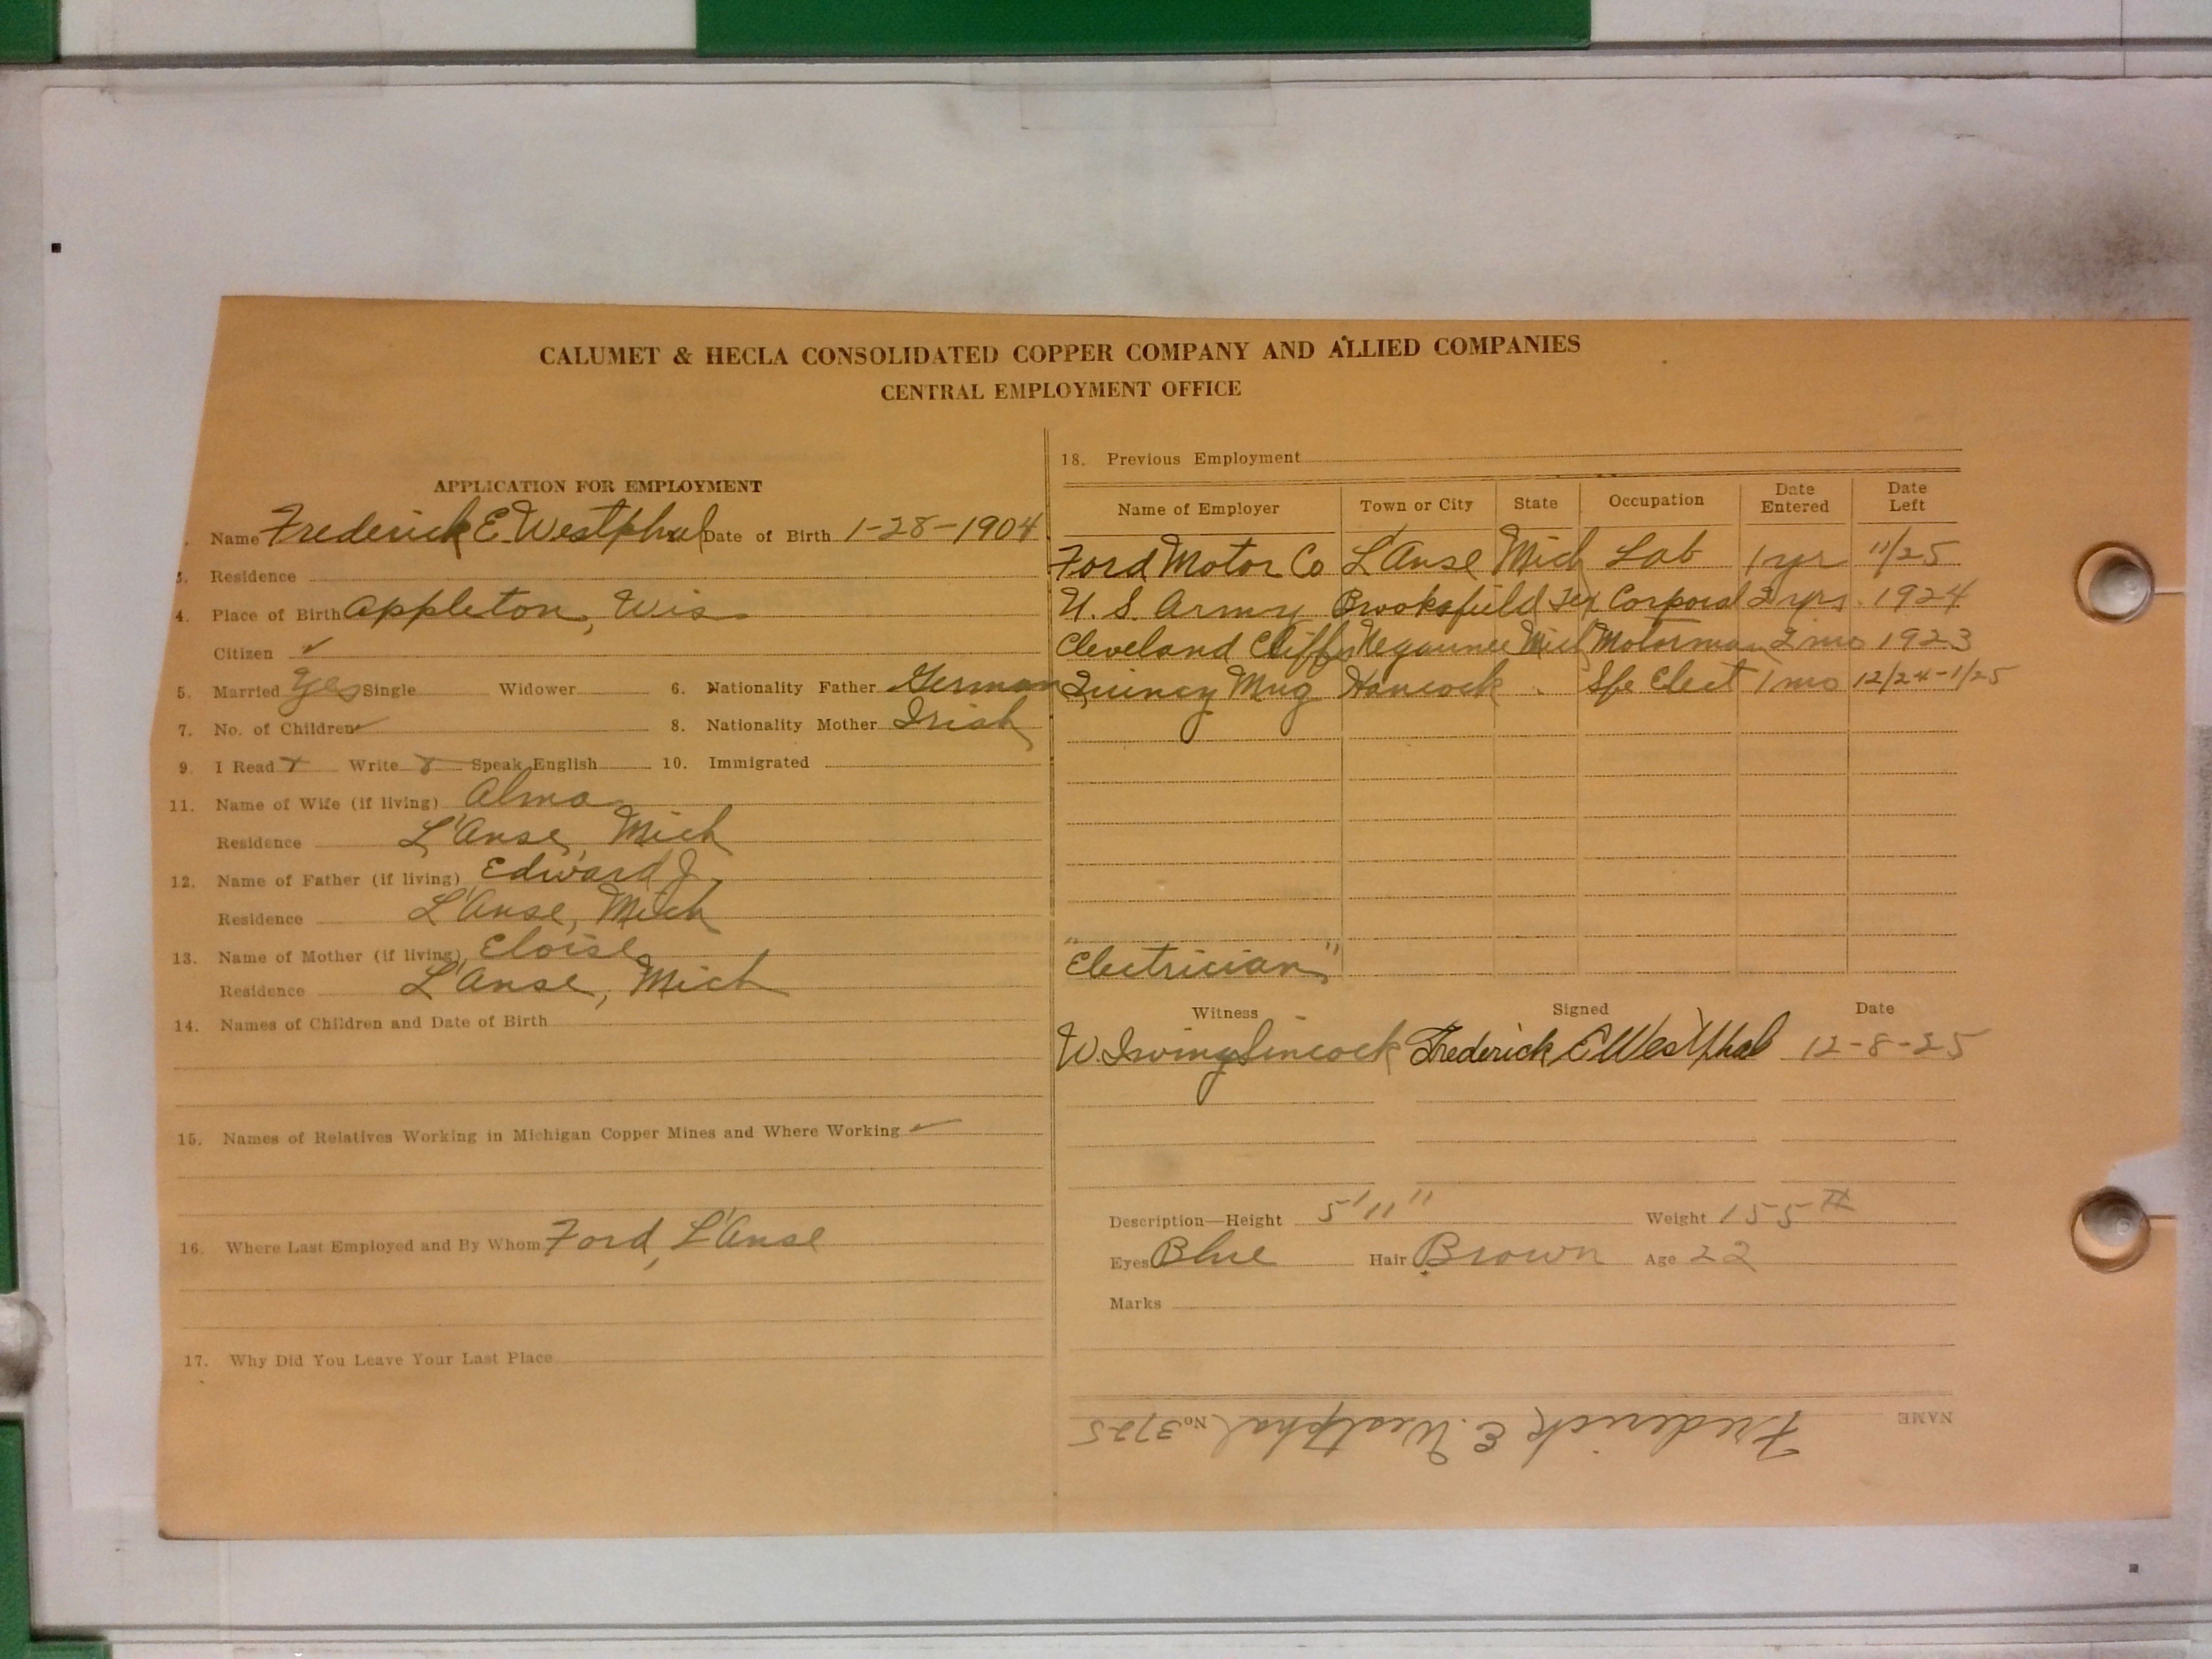 CALUMET & HECLA CONSOLIDATED COPPER COMPANY AND ALLIED COMPANIES
CENTRAL EMPLOYMENT OFFICE
APPLICATION FOR EMPLOYMENT
Name Frederick E. Westphal Date of Birth 1-28-1904
3. Residence
4. Place of Birth Appleton, Wis
Citizen ✓
5. Married Yes Single Widower 6. Nationality Father German
7. No. of Children ✓ 8. Nationality Mother Irish
9. I Read x Write x Speak English 10. Immigrated
11. Name of Wife (if living) Alma
Residence L'Anse, Mich
12. Name of Father (if living) Edward J.
Residence L'Anse, Mich
13. Name of Mother (if living) Eloise
Residence L'Anse, Mich
14. Names of Children and Date of Birth
15. Names of Relatives Working in Michigan Copper Mines and Where Working ✓
16. Where Last Employed and By Whom Ford, L'Anse
17. Why Did You Leave Your Last Place
18. Previous Employment
Name of Employer Town or City State Occupation Date Entered Date Left
Ford Motor Co L'Anse Mich Lab 1 yr 11/25
U. S. Army Brooksfield Tex Corporal 2 yrs. 1924
Cleveland Cliffs Negaunee Mich Motorman 2 mo 1923
Quincy Mng Hancock Elect 1 mo 12/24-1/25
"Electrician"
Witness Signed Date
W. Irving Sincock Frederick E Westphal 12-8-25
Description—Height 5'11" Weight 155 #
Eyes Blue Hair Brown Age 22
Marks
NAME Frederick E. Westphal No. 3725